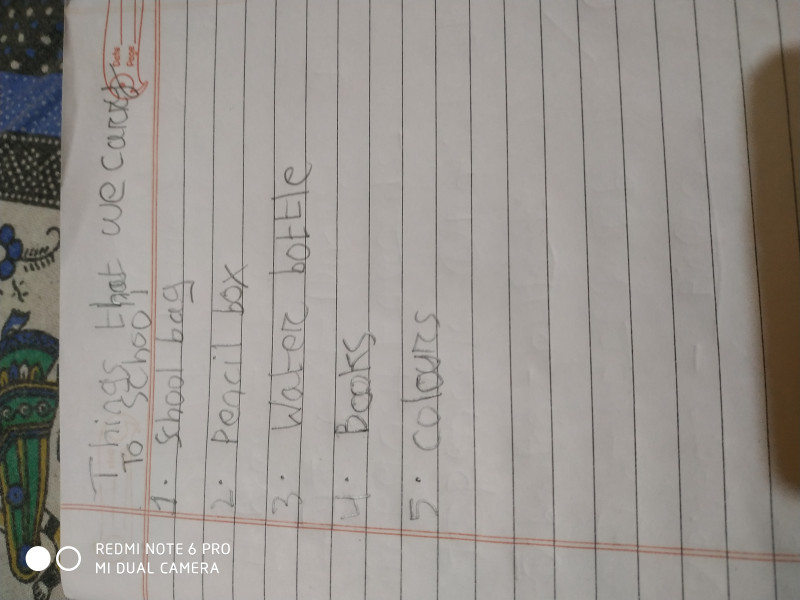 Date
Page
Things that we carry
To School
1. School bag
2. Pencil box
3. Water bottle
4. Books
5. colours
REDMI NOTE 6 PRO
MI DUAL CAMERA